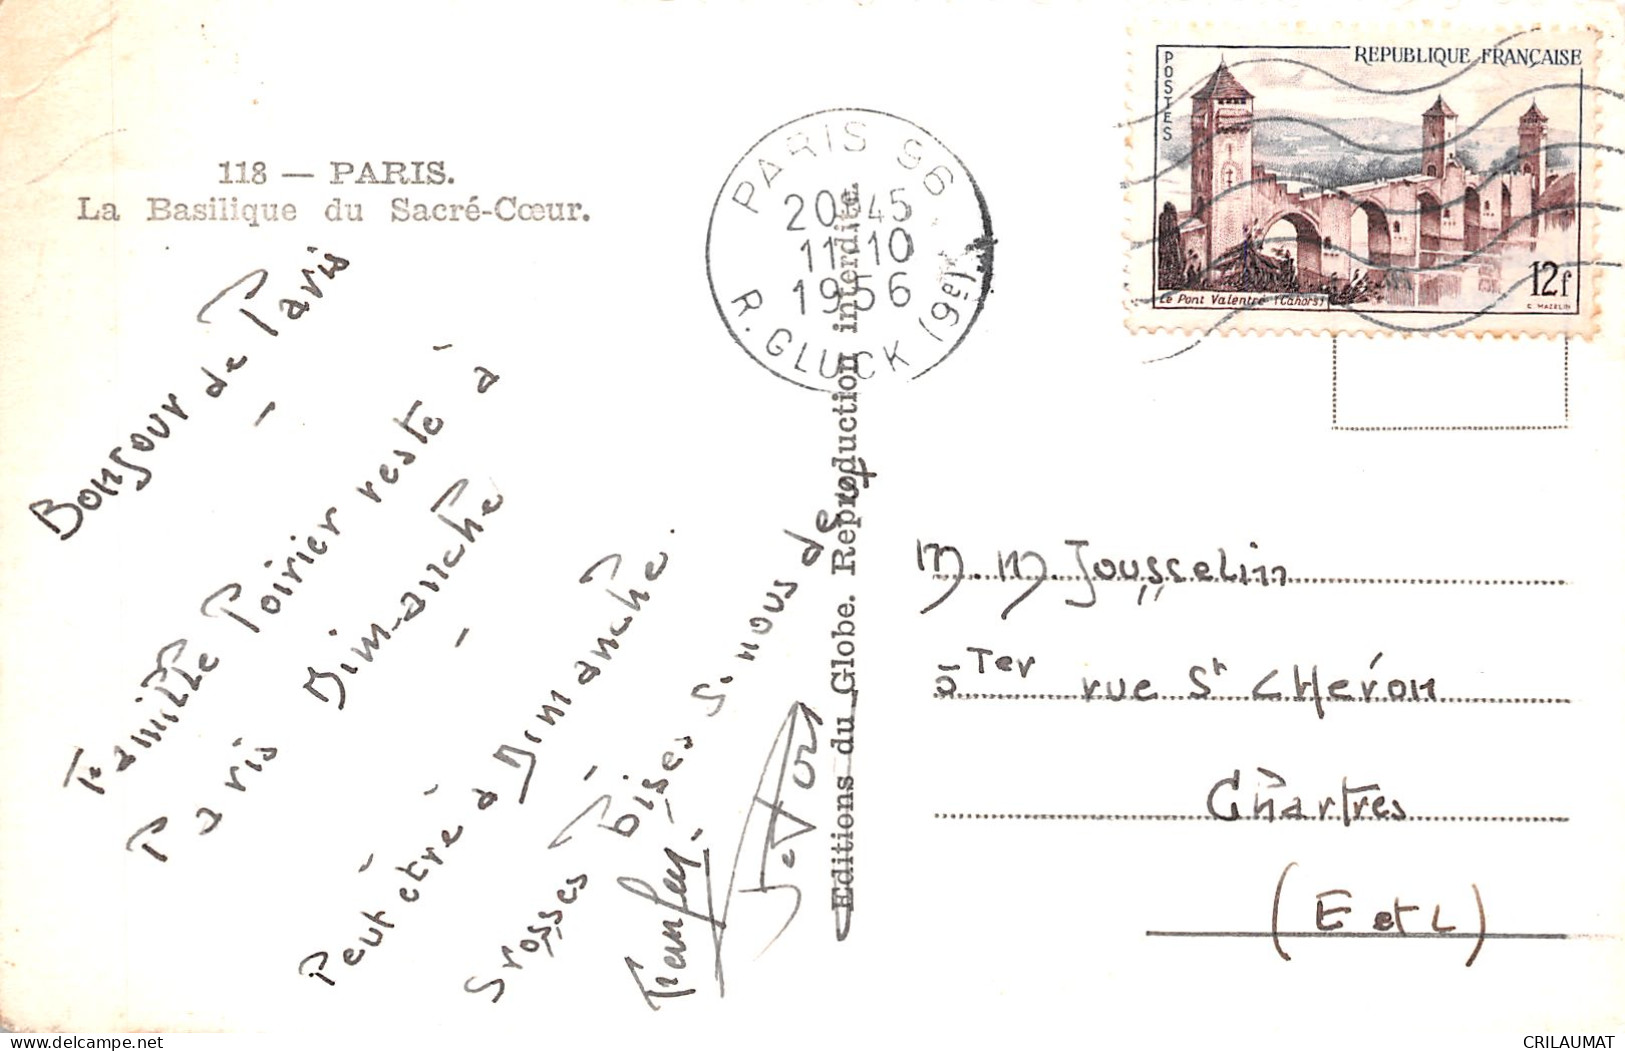 118 — PARIS.
La Basilique du Sacré-Cœur.
Bonjour de Paris
—
Famille Poirier reste à
Paris Dimanche
—
Peut être à Dimanche.
—
Grosses Bises
nous de
Editions du Globe. Reproduction interdite.
PARIS 96
20H45
11-10
1956
R. GLUCK (9e)
POSTES
REPUBLIQUE FRANÇAISE
Le Pont Valentré (Cahors)
12f
C. MAZELIN
M. M. Jousselin
5 Ter rue St Chéron
Chartres
(E et L)
CRILAUMAT